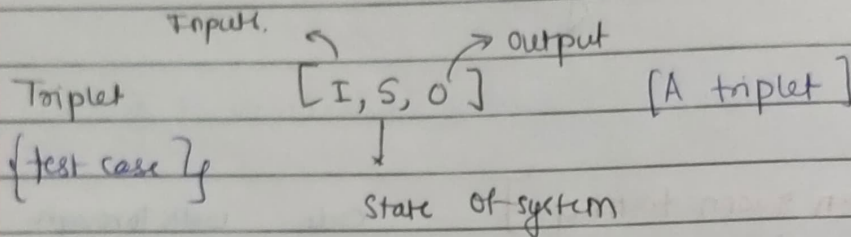 Input.
output
Triplet [I, S, O] [A triplet]
{test case}
State of system